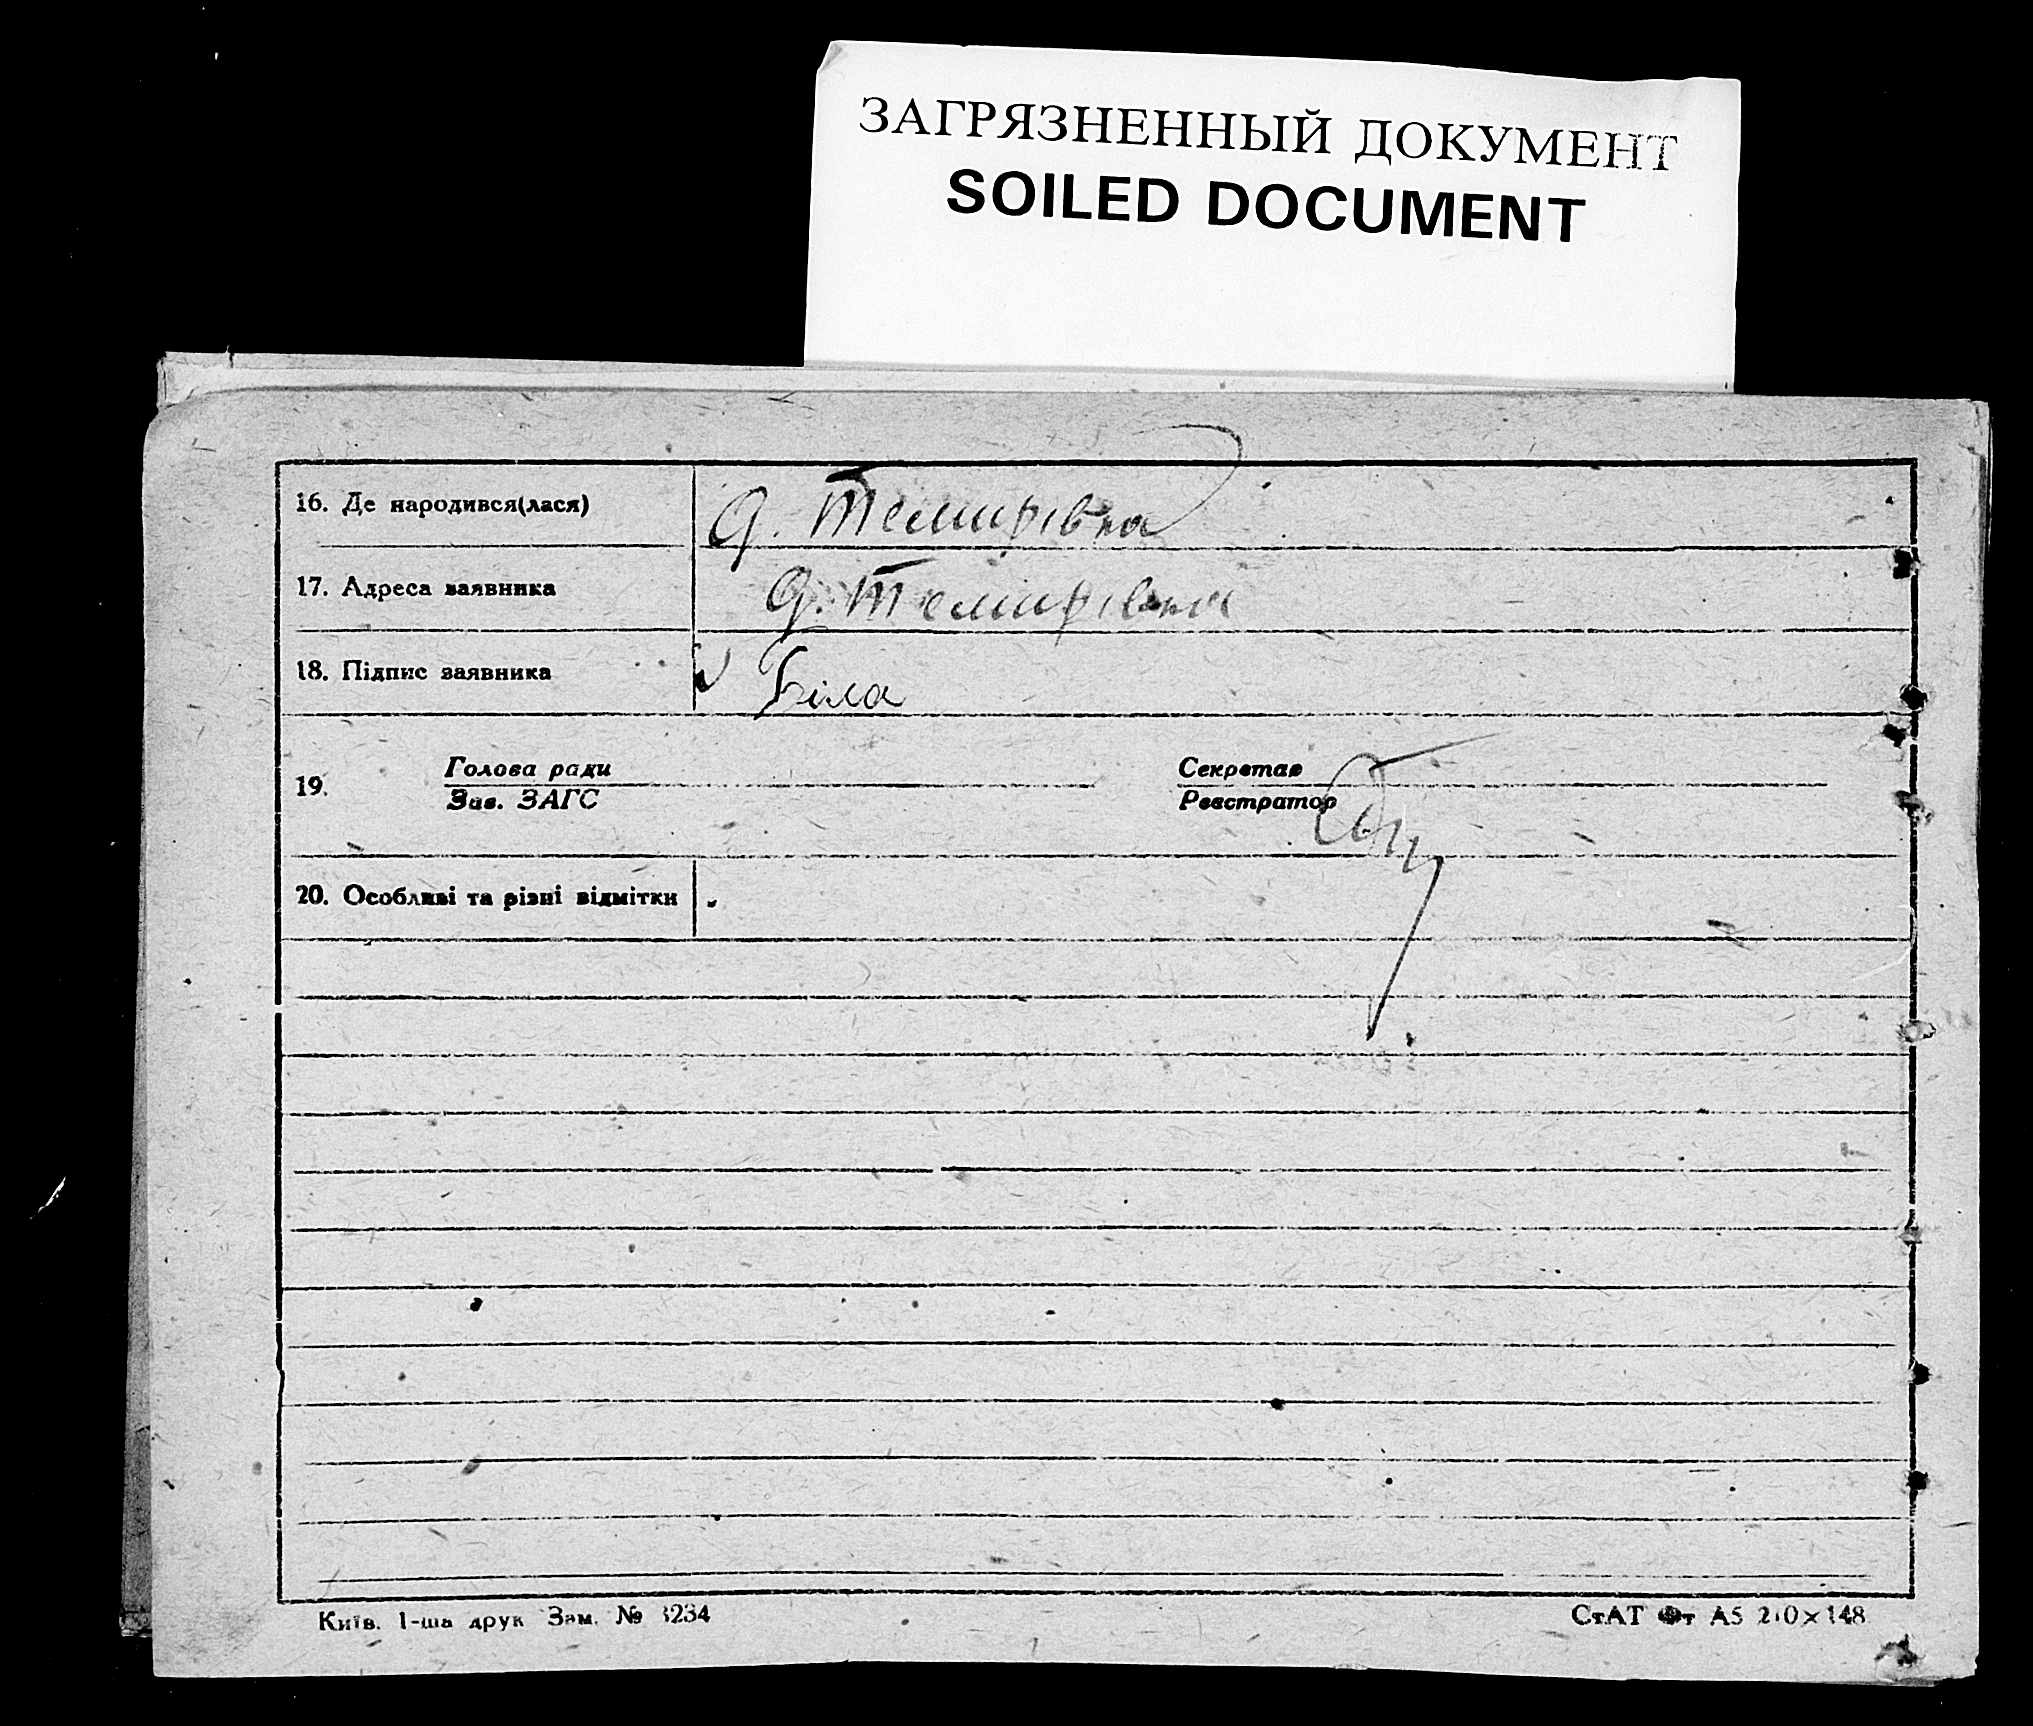 ЗАГРЯЗНЕННЫЙ ДОКУМЕНТ
SOILED DOCUMENT
16. Де народився(лася) д. Темирівка
17. Адреса заявника д. Темирівка
18. Підпис заявника Біла
19. Голова ради Секретар
Зав. ЗАГС Реєстратор
20. Особливі та різні відмітки
Київ. 1-ша друк Зам. № 3234 СтАТ Фт А5 210×148